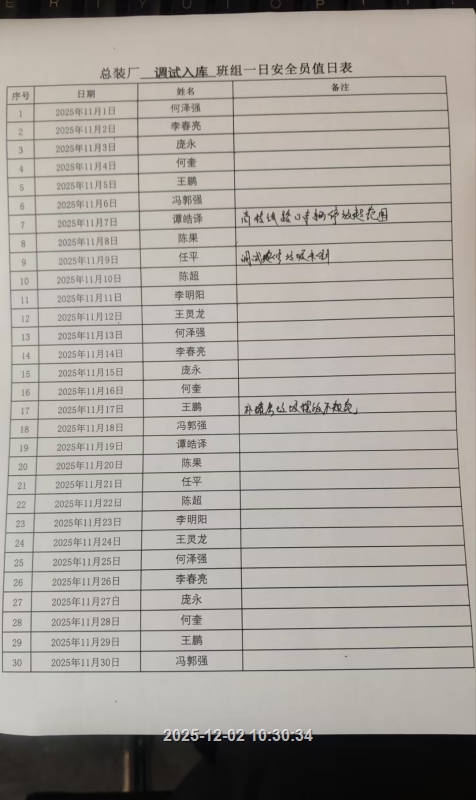 总装厂 调试入库 班组一日安全员值日表
序号 日期 姓名 备注
1 2025年11月1日 何泽强
2 2025年11月2日 李春亮
3 2025年11月3日 庞永
4 2025年11月4日 何奎
5 2025年11月5日 王鹏
6 2025年11月6日 冯郭强
7 2025年11月7日 谭皓译
8 2025年11月8日 陈果
9 2025年11月9日 任平
10 2025年11月10日 陈超
11 2025年11月11日 李明阳
12 2025年11月12日 王灵龙
13 2025年11月13日 何泽强
14 2025年11月14日 李春亮
15 2025年11月15日 庞永
16 2025年11月16日 何奎
17 2025年11月17日 王鹏
18 2025年11月18日 冯郭强
19 2025年11月19日 谭皓译
20 2025年11月20日 陈果
21 2025年11月21日 任平
22 2025年11月22日 陈超
23 2025年11月23日 李明阳
24 2025年11月24日 王灵龙
25 2025年11月25日 何泽强
26 2025年11月26日 李春亮
27 2025年11月27日 庞永
28 2025年11月28日 何奎
29 2025年11月29日 王鹏
30 2025年11月30日 冯郭强
2025-12-02 10:30:34